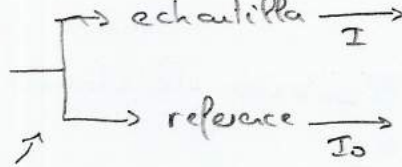 echantilla I
reference I₀